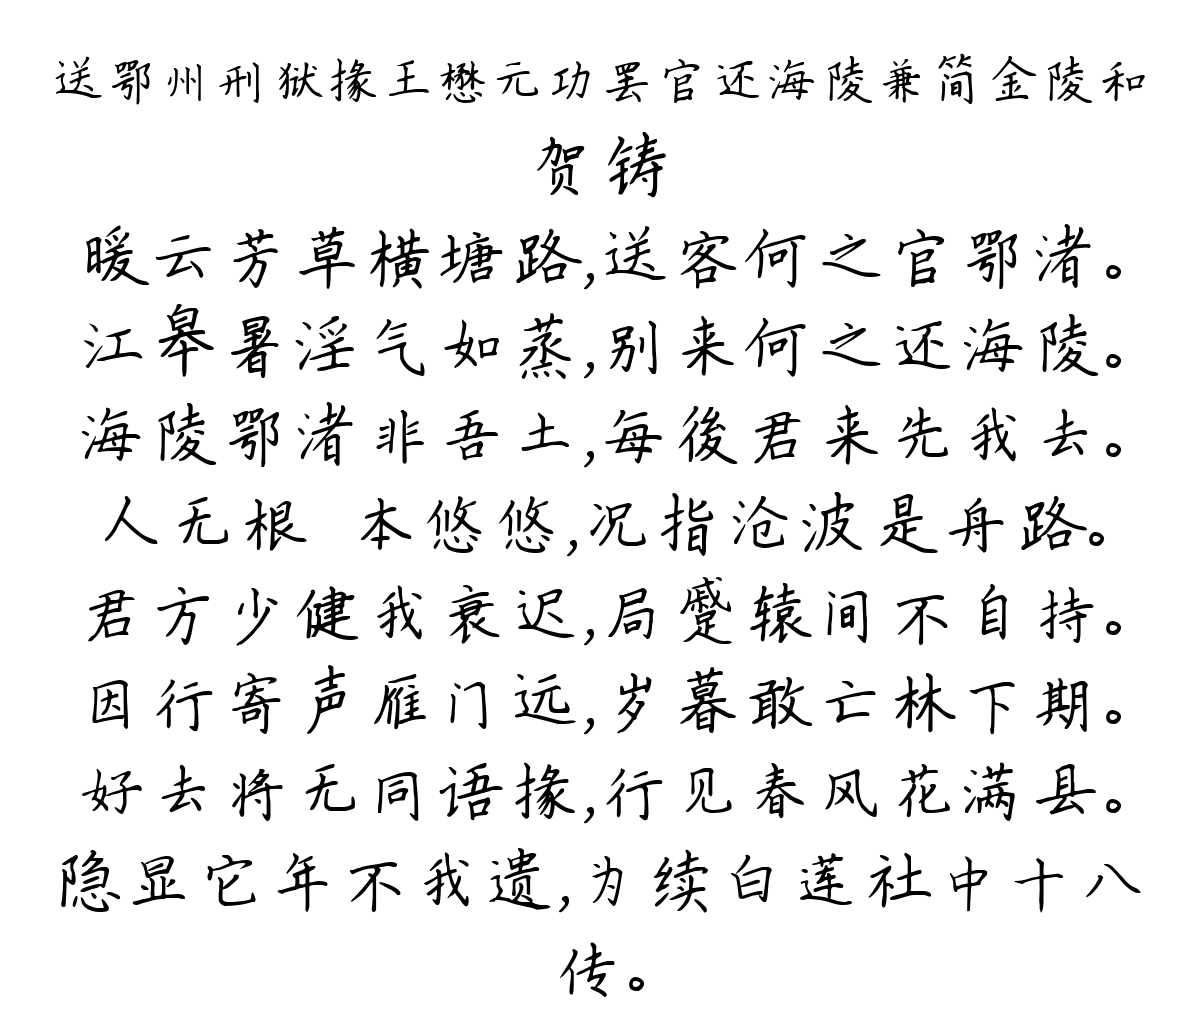 送鄂州刑狱掾王懋元功罢官还海陵兼简金陵和
贺铸
暖云芳草横塘路,送客何之官鄂渚。
江皋暑淫气如蒸,别来何之还海陵。
海陵鄂渚非吾土,每後君来先我去。
人无根 本悠悠,况指沧波是舟路。
君方少健我衰迟,局蹙辕间不自持。
因行寄声雁门远,岁暮敢亡林下期。
好去将无同语掾,行见春风花满县。
隐显它年不我遗,为续白莲社中十八
传。